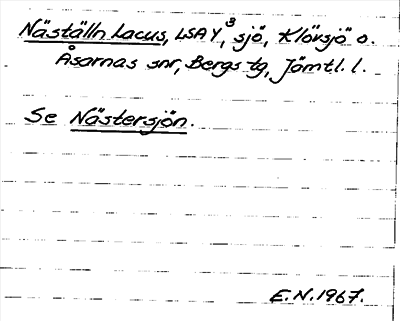 Näställn Lacus, LSA Y,³ sjö, Klövsjö o.
Åsarnas snr, Bergs tg, Jämtl. l.
Se Nästersjön.
E.N. 1967.